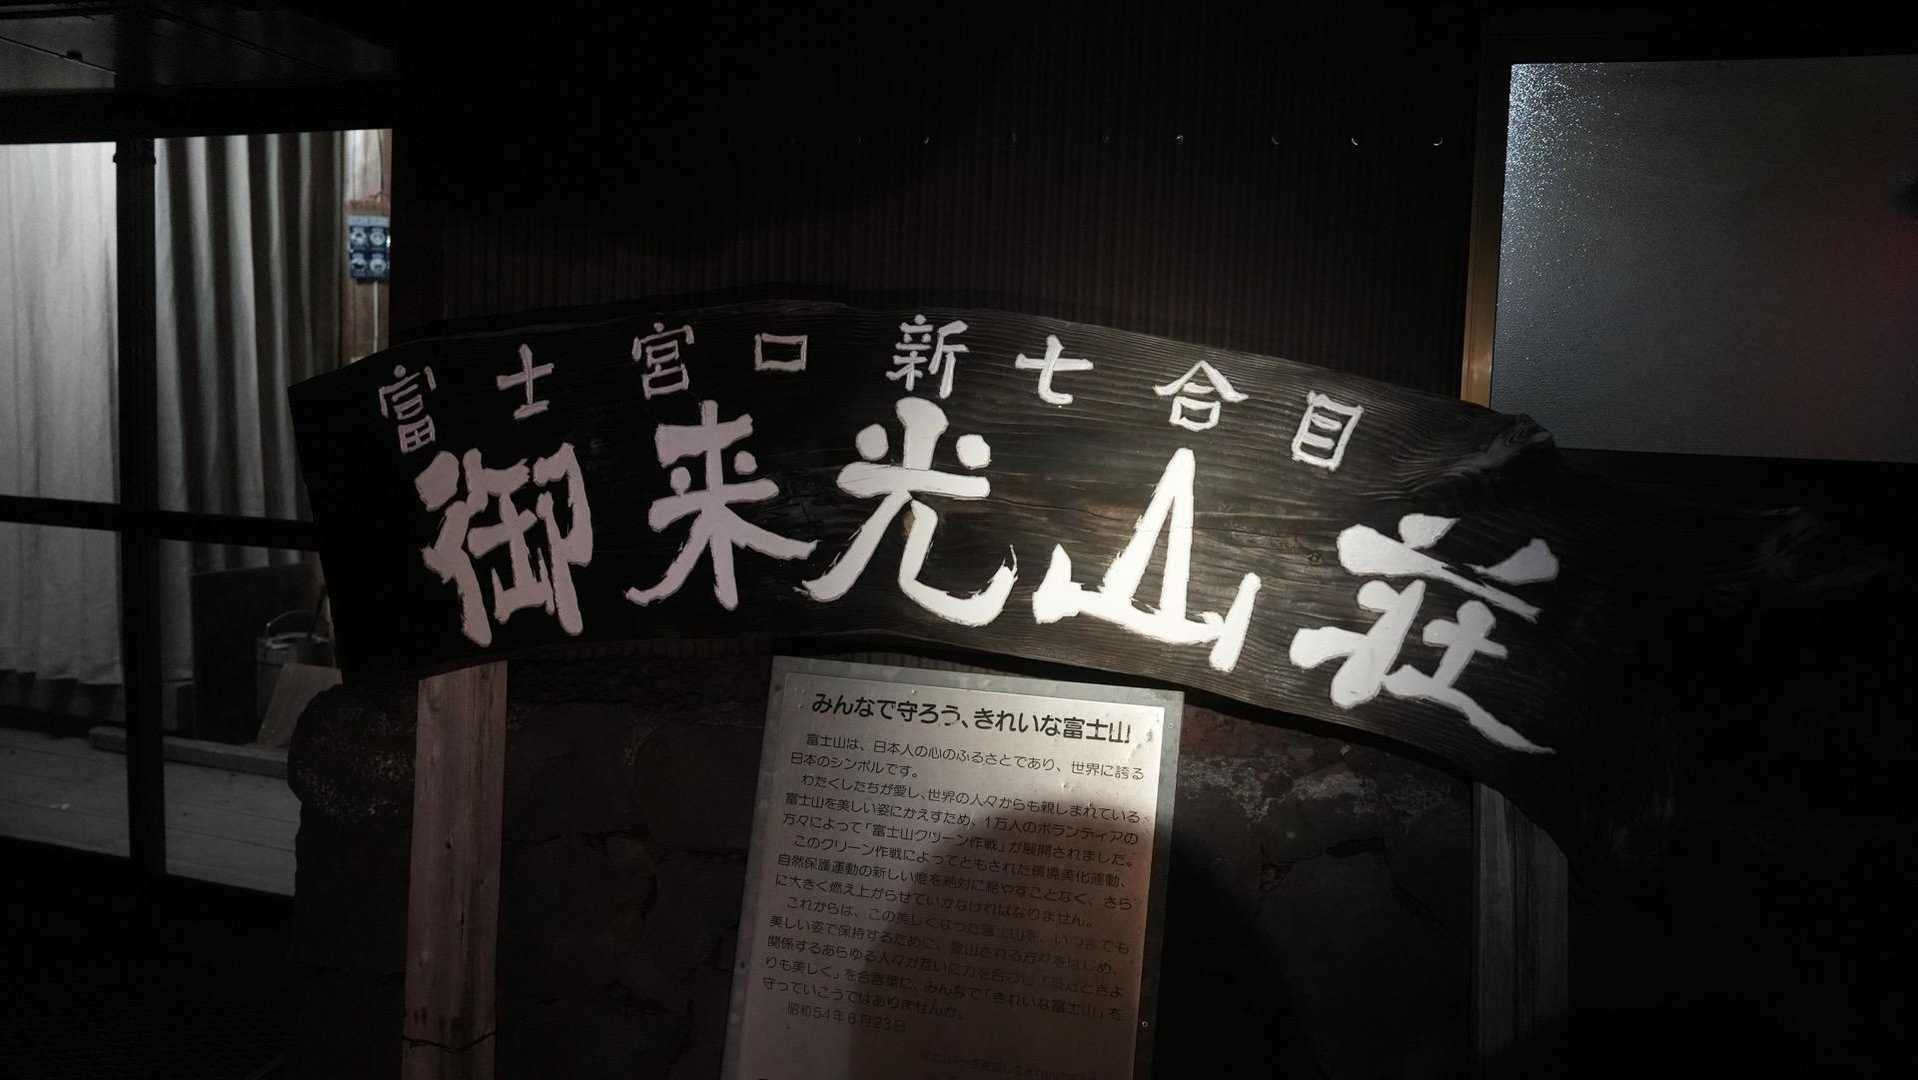 富士宮口 新七合目
御来光山荘
みんなで守ろう、きれいな富士山
富士山は、日本人の心のふるさとであり、世界に誇る
日本のシンボルです。
わたくしたちが愛し、世界の人々からも親しまれている
富士山を美しい姿にかえすため、1万人のボランティアの
方々によって「富士山クリーン作戦」が展開されました。
このクリーン作戦によってともされた環境美化運動、
自然保護運動の新しい燈を絶対に絶やすことなく、さら
に大きく燃え上がらせていかなければなりません。
これからは、この美しくなった富士山を、いつまでも
美しい姿で保持するために、登山される方々をはじめ、
関係するあらゆる人々が互いに力を合わせ「来たときよ
りも美しく」を合言葉に、みんなで「きれいな富士山」を
守っていこうではありませんか。
昭和54年6月23日